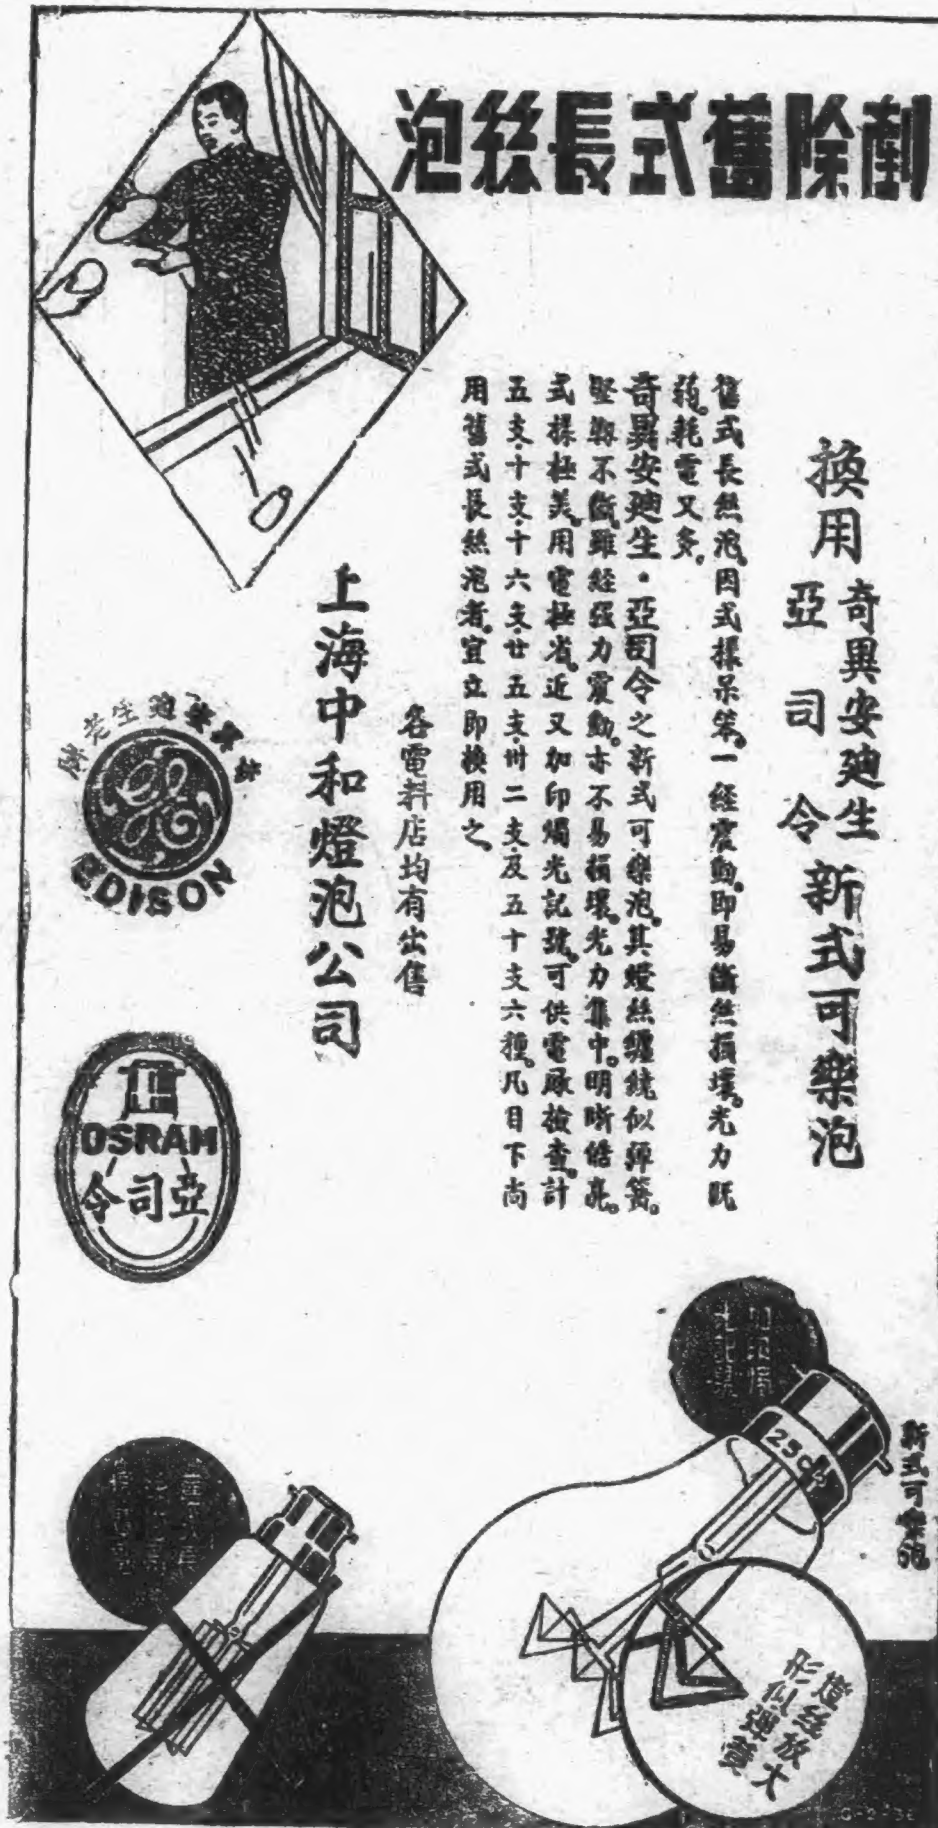 剷除舊式長絲泡
換用
奇異安廸生
亞司令
新式可樂泡
舊式長絲泡。因式樣呆笨。一經震動。即易斷絲損壞。光力既
弱。耗電又多。
奇異安廸生・亞司令之新式可樂泡。其燈絲纏繞似彈簧。
堅韌不斷。雖經强力震動。亦不易損壞。光力集中。明晰皓亮。
式樣極美。用電極省。近又加印燭光記號。可供電廠檢查。計
五支・十支・十六支・廿五支・卅二支・及五十支六種。凡目下尚
用舊式長絲泡者。宜立即換用之。
各電料店均有出售
上海中和燈泡公司
EDISON
OSRAM
亞司令
25CP
新式可樂泡
燈絲放大
形似彈簧